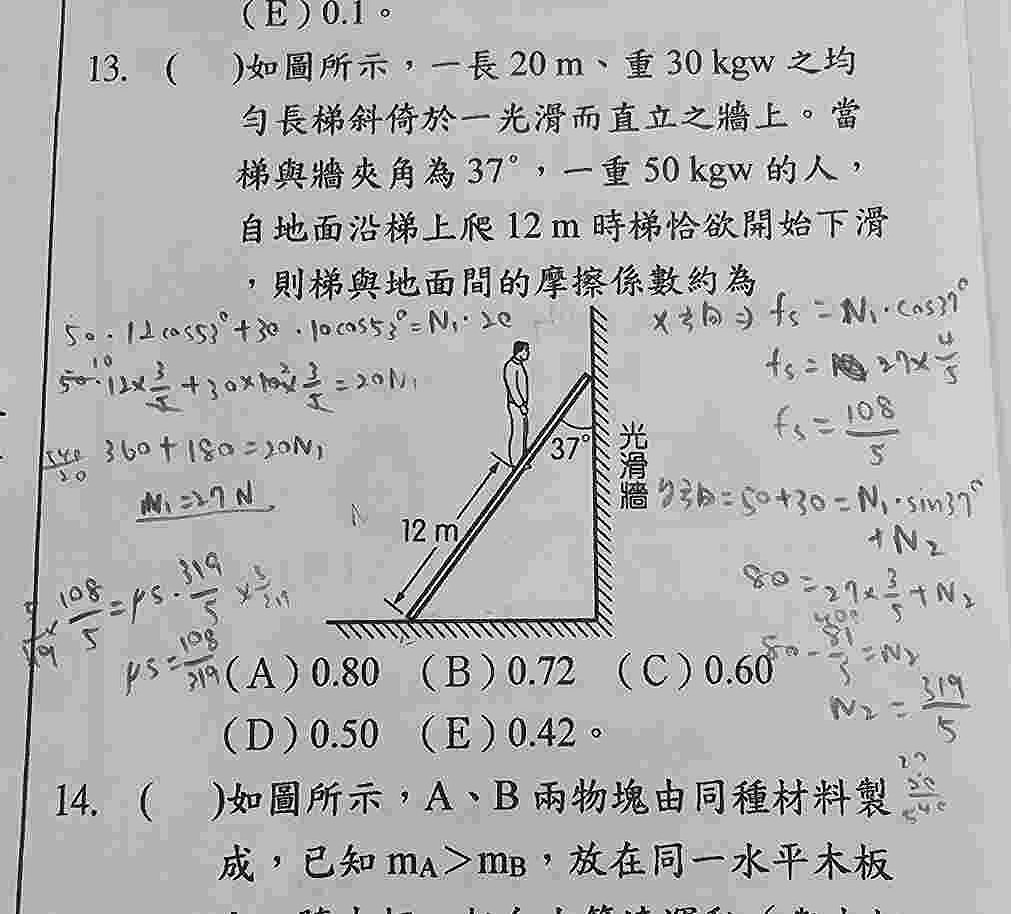 (E)0.1。
13. ( )如圖所示，一長 20 m、重 30 kgw 之均
勻長梯斜倚於一光滑而直立之牆上。當
梯與牆夾角為 37°，一重 50 kgw 的人，
自地面沿梯上爬 12 m 時梯恰欲開始下滑
，則梯與地面間的摩擦係數約為
50·12cos53°+30·10cos53°=N₁·20
10
50·12×3/5+30×10×3/5=20N₁
2
540/20
360+180=20N₁
N₁=27N
108/5=μs·319/5
μs=108/319
37°
12 m
光滑牆
x方向⇒ fs=N₁·cos37°
fs=27×4/5
fs=108/5
y方向=50+30=N₁·sin37°
+N₂
80=27×3/5+N₂
400
80-81/5=N₂
N₂=319/5
(A)0.80 (B)0.72 (C)0.60
(D)0.50 (E)0.42。
27
20
540
14. ( )如圖所示，A、B 兩物塊由同種材料製
成，已知 mA>mB，放在同一水平木板